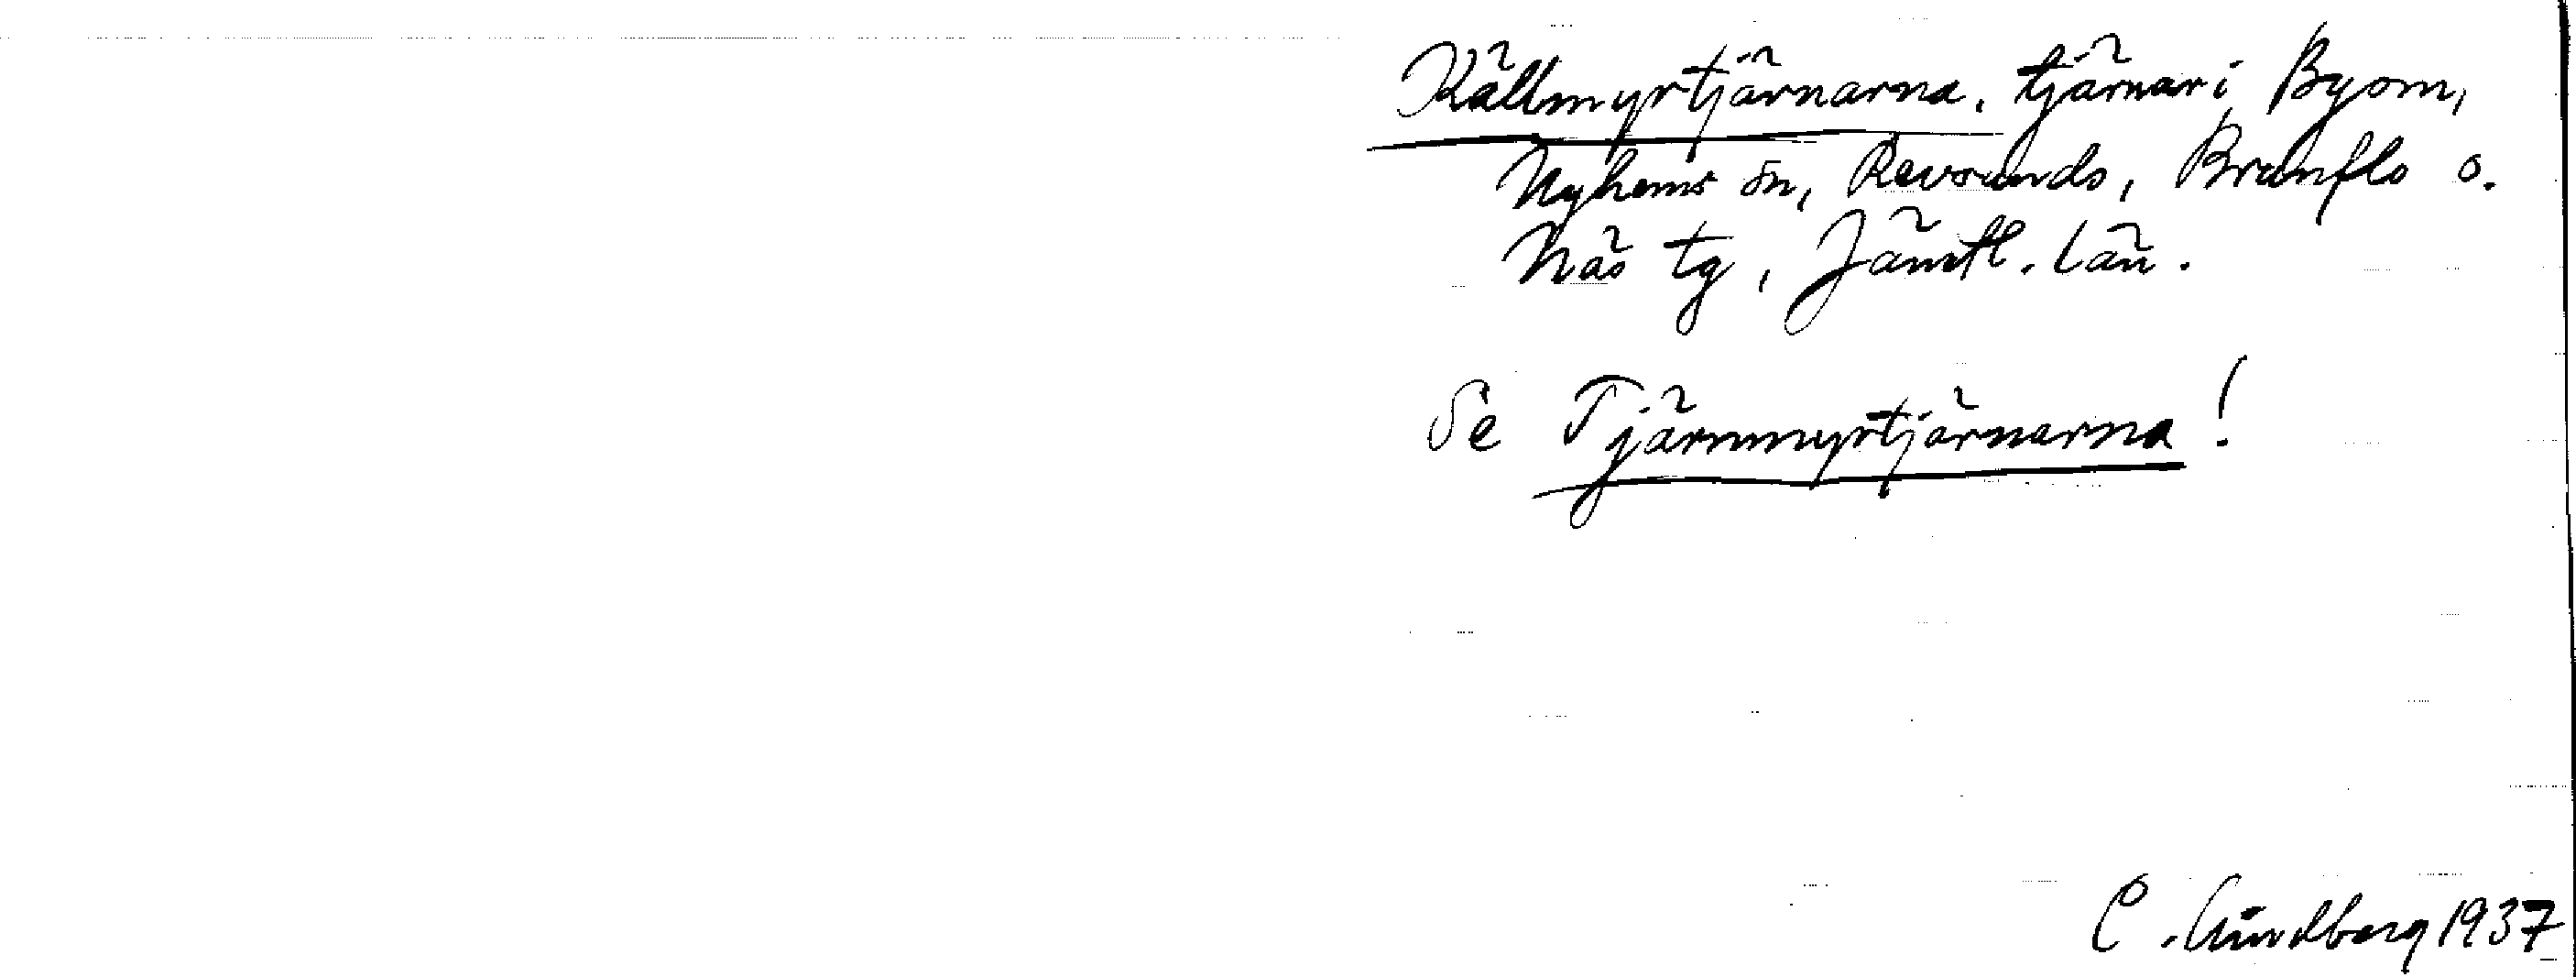 Källmyrtjärnarna, tjärnar i Byom,
Nyhems sn, Revsunds, Brunflo o.
Näs tg, Jämtl. län.
Se Tjärnmyrtjärnarna!
C. Lindberg 1937